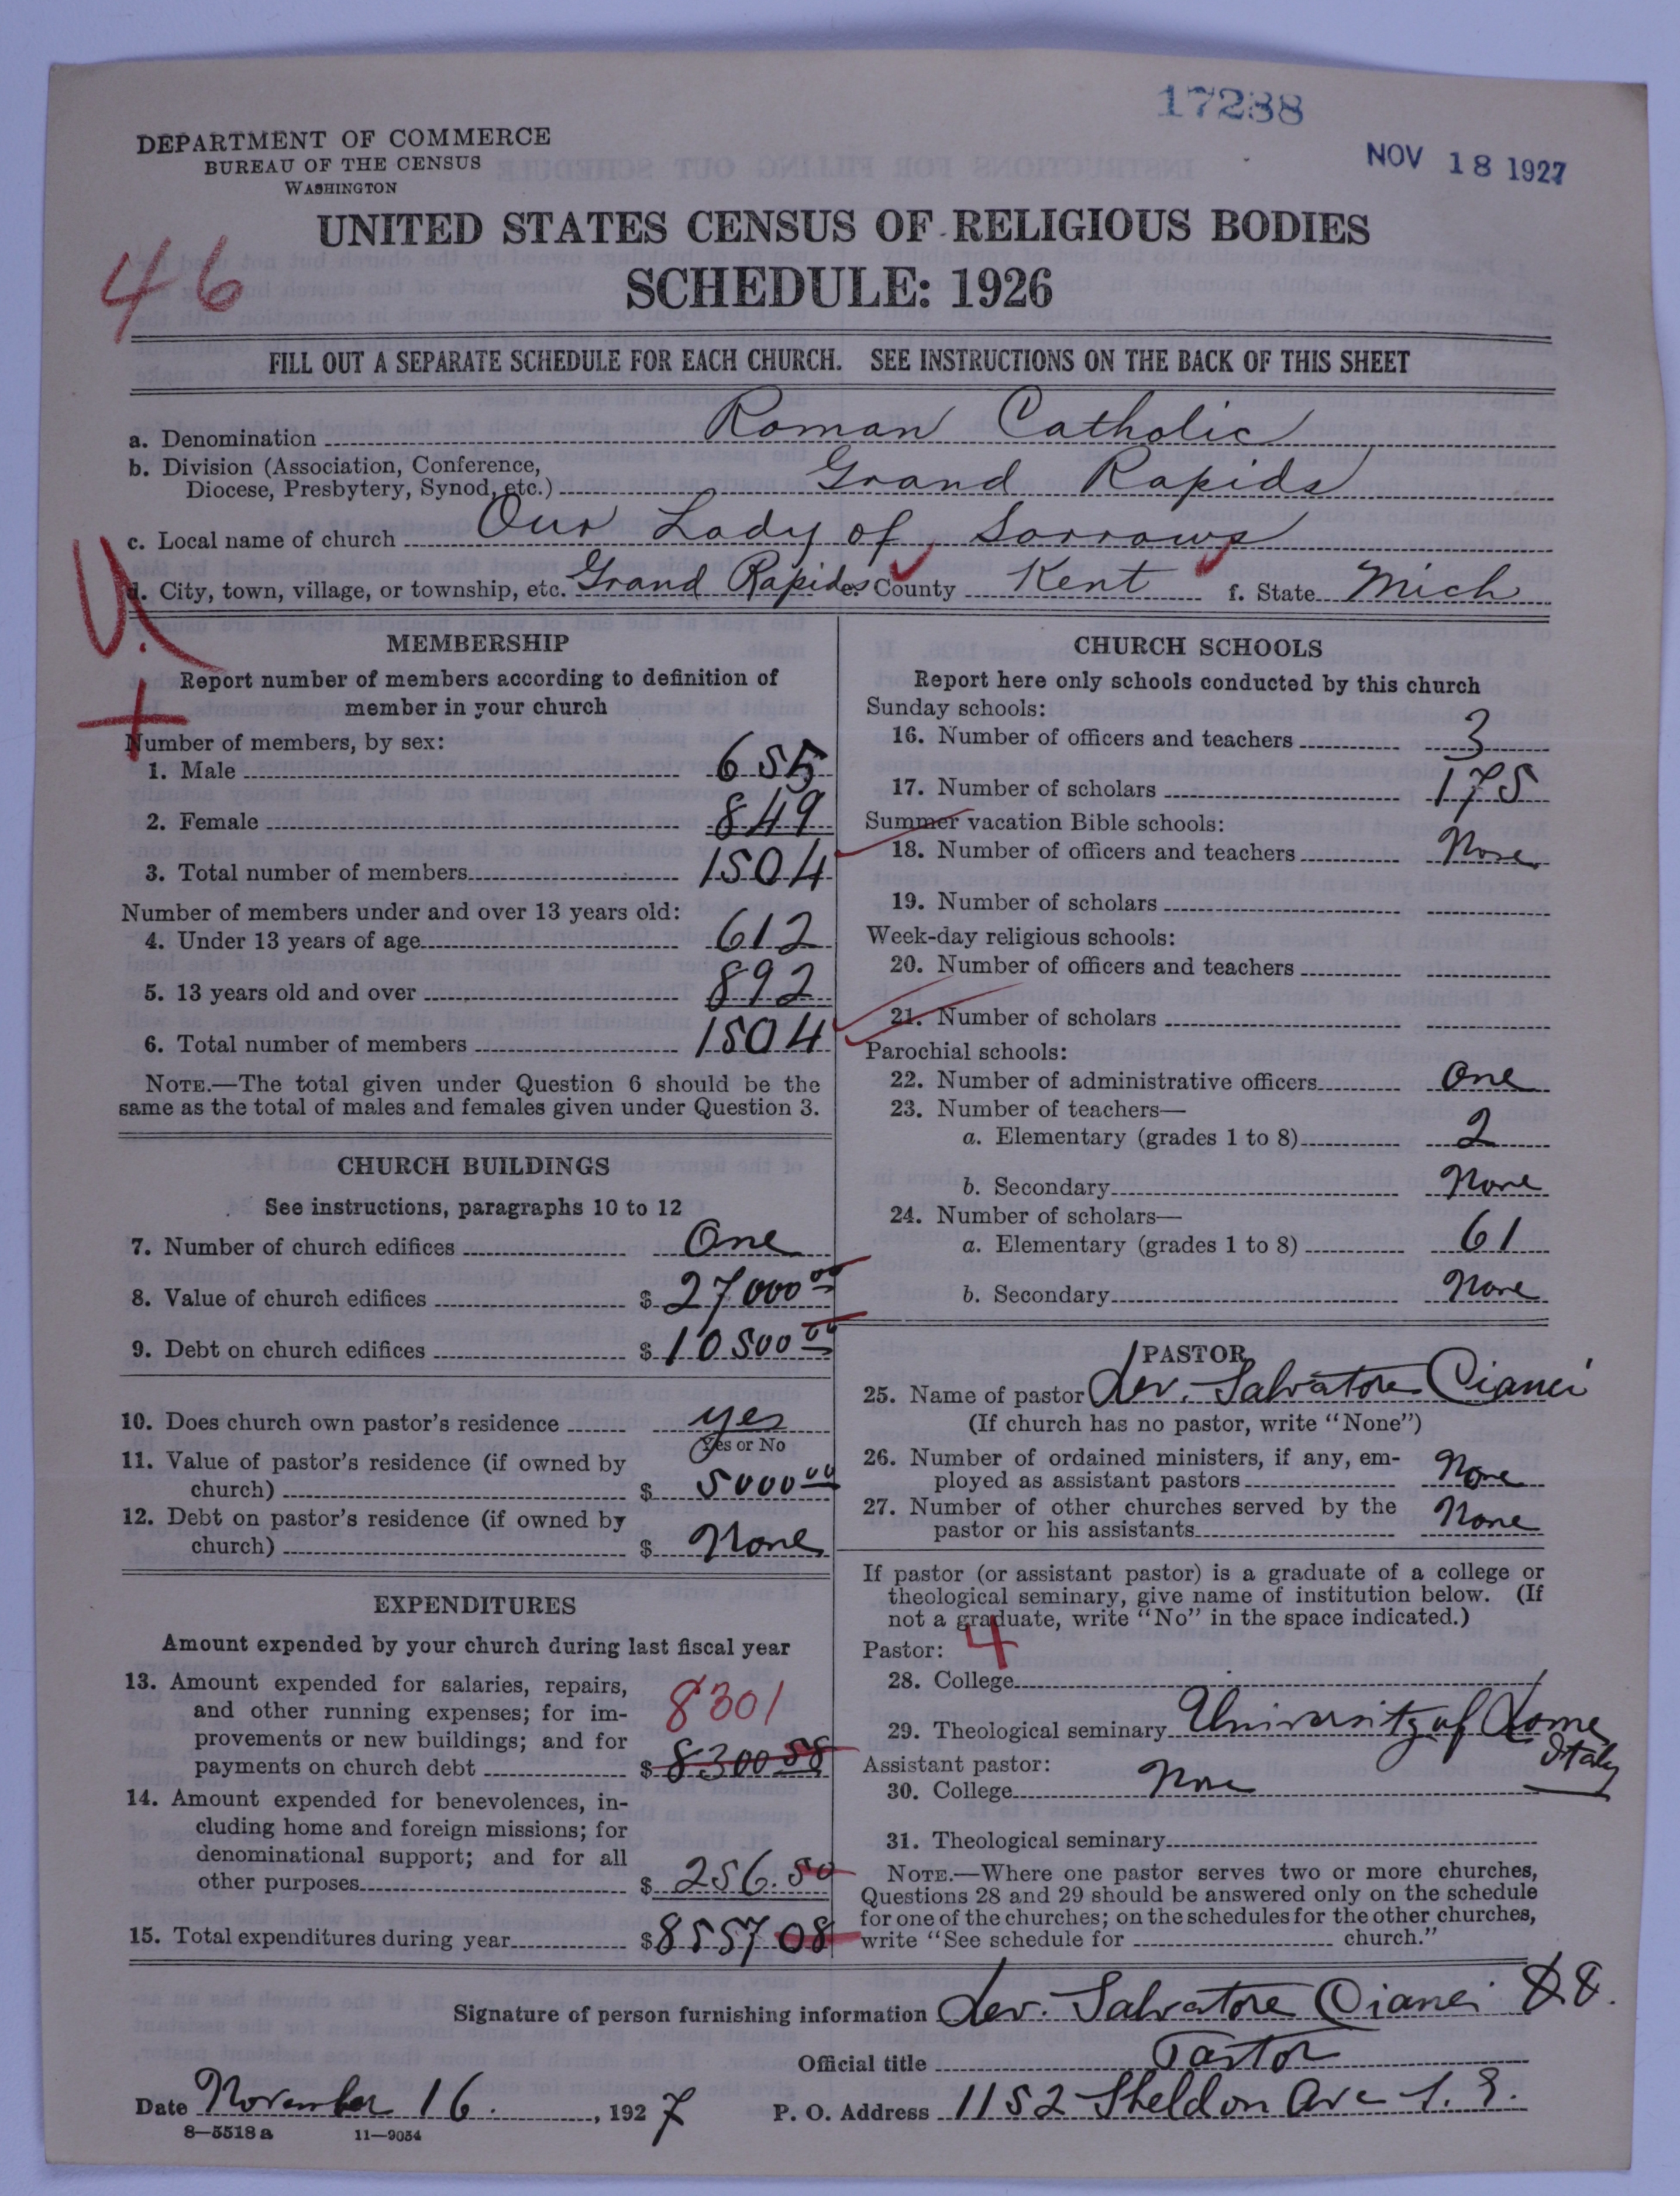 17238
NOV 18 1927
DEPARTMENT OF COMMERCE
BUREAU OF THE CENSUS
WASHINGTON
UNITED STATES CENSUS OF RELIGIOUS BODIES
SCHEDULE: 1926
46
FILL OUT A SEPARATE SCHEDULE FOR EACH CHURCH. SEE INSTRUCTIONS ON THE BACK OF THIS SHEET
a. Denomination Roman Catholic
b. Division (Association, Conference,
Diocese, Presbytery, Synod, etc.) Grand Rapids
c. Local name of church Our Lady of Sorrows
d. City, town, village, or township, etc. Grand Rapids e. County Kent f. State Mich
MEMBERSHIP
Report number of members according to definition of
member in your church
Number of members, by sex:
1. Male 655
2. Female 849
3. Total number of members 1504
Number of members under and over 13 years old:
4. Under 13 years of age 612
5. 13 years old and over 892
6. Total number of members 1504
NOTE.—The total given under Question 6 should be the
same as the total of males and females given under Question 3.
CHURCH BUILDINGS
See instructions, paragraphs 10 to 12
7. Number of church edifices One
8. Value of church edifices $ 27000 00
9. Debt on church edifices $ 10500 00
10. Does church own pastor's residence yes
Yes or No
11. Value of pastor's residence (if owned by
church) $ 5000 00
12. Debt on pastor's residence (if owned by
church) $ None
EXPENDITURES
Amount expended by your church during last fiscal year
13. Amount expended for salaries, repairs,
and other running expenses; for im-
provements or new buildings; and for
payments on church debt $ 8300 58
8301
14. Amount expended for benevolences, in-
cluding home and foreign missions; for
denominational support; and for all
other purposes $ 256.50
15. Total expenditures during year $ 8557 08
CHURCH SCHOOLS
Report here only schools conducted by this church
Sunday schools:
16. Number of officers and teachers 3
17. Number of scholars 175
Summer vacation Bible schools:
18. Number of officers and teachers None
19. Number of scholars
Week-day religious schools:
20. Number of officers and teachers
21. Number of scholars
Parochial schools:
22. Number of administrative officers One
23. Number of teachers—
a. Elementary (grades 1 to 8) 2
b. Secondary None
24. Number of scholars—
a. Elementary (grades 1 to 8) 61
b. Secondary None
PASTOR
25. Name of pastor Rev. Salvatore Cianci
(If church has no pastor, write "None")
26. Number of ordained ministers, if any, em-
ployed as assistant pastors None
27. Number of other churches served by the
pastor or his assistants None
If pastor (or assistant pastor) is a graduate of a college or
theological seminary, give name of institution below. (If
not a graduate, write "No" in the space indicated.)
Pastor: 4
28. College
29. Theological seminary University of Rome
Italy
Assistant pastor:
30. College None
31. Theological seminary
NOTE.—Where one pastor serves two or more churches,
Questions 28 and 29 should be answered only on the schedule
for one of the churches; on the schedules for the other churches,
write "See schedule for church."
Signature of person furnishing information Rev. Salvatore Cianci D.D.
Official title Pastor
Date November 16. , 1927 P. O. Address 1152 Sheldon Ave S. E.
8—5518 a 11—9054